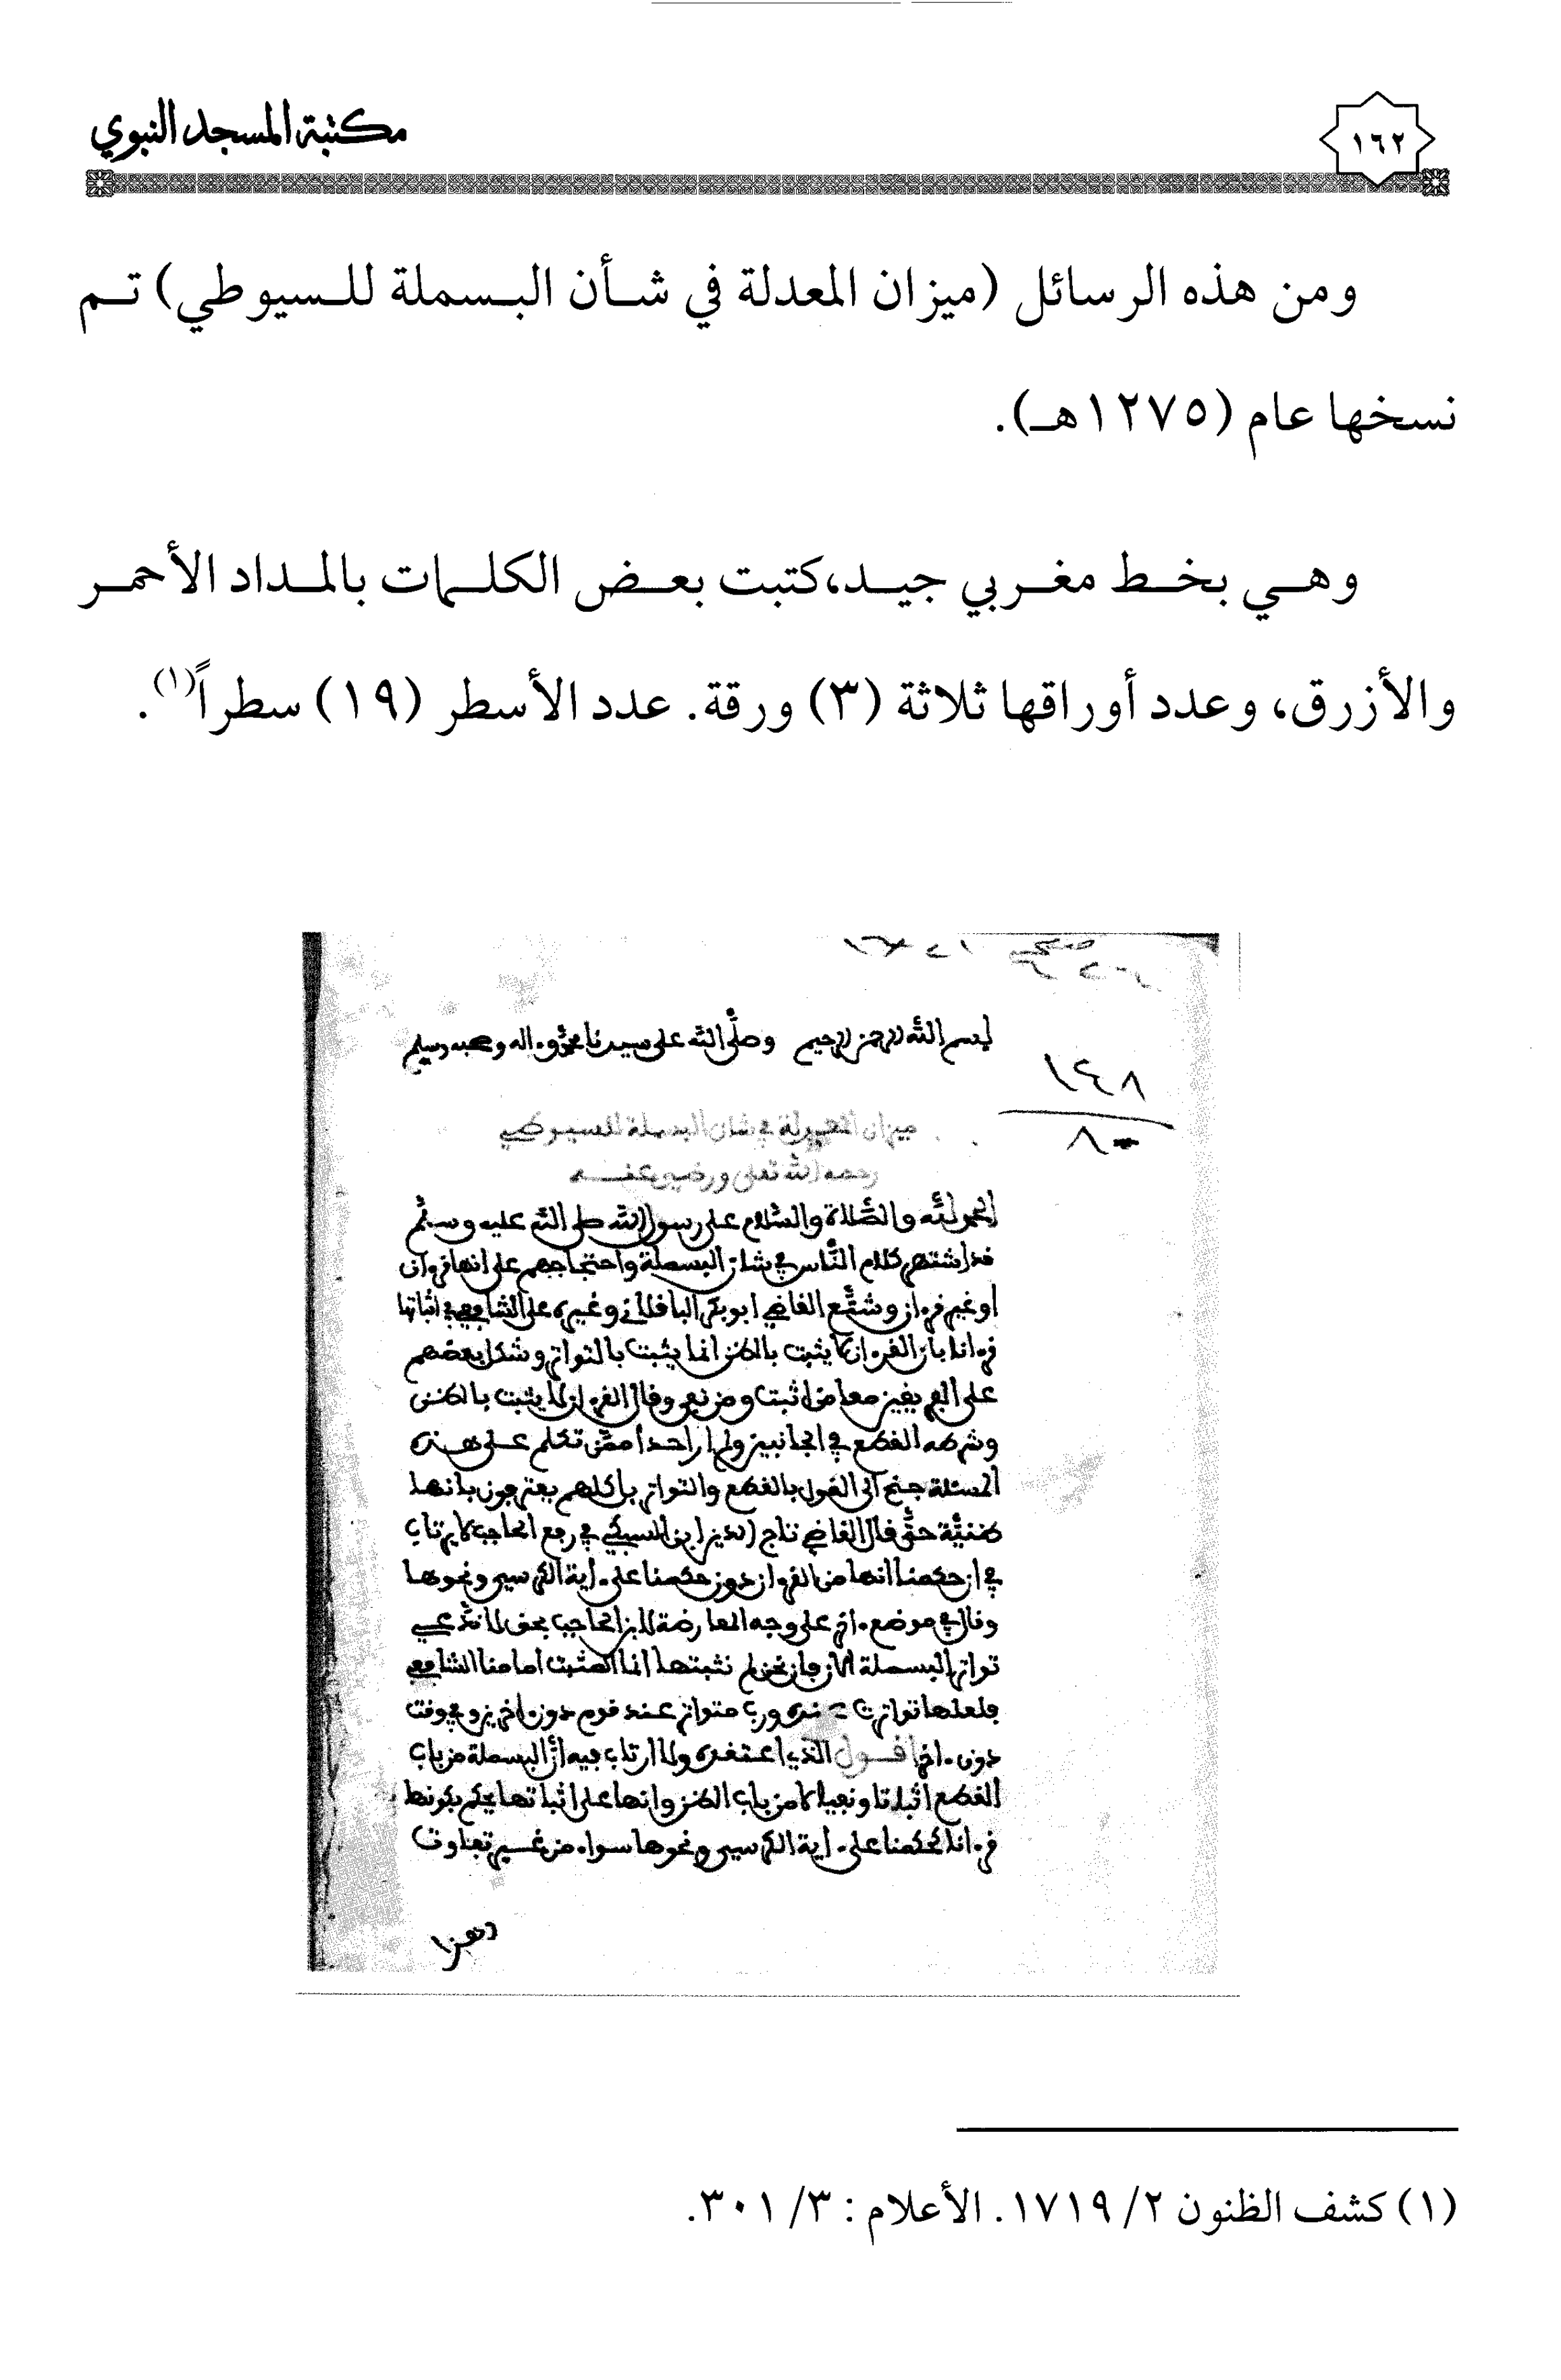 مكتبة المسجد النبوي
١٦٢
ومن هذه الرسائل (ميزان المعدلة في شأن البسملة للسيوطي) تم
نسخها عام (١٢٧٥هـ).
وهي بخط مغربي جيد،كتبت بعض الكلمات بالمداد الأحمر
والأزرق، وعدد أوراقها ثلاثة (٣) ورقة. عدد الأسطر (١٩) سطراً(١).
بسم الله الرحمن الرحيم وصلى الله على سيدنا محمد وءاله وصحبه وسلم
٨٤١
٨٠
ميزان المعدلة في شان البسملة للسيوطي
رحمه الله تعلى ورضي عنه
الحمد لله والصلاة والسلام على رسول الله صلى الله عليه وسلم
قد اشتهر كلام الناس في شان البسملة واحتجاجهم على انها قرءان
او غير قرءان وشنع القاضي ابو بكر الباقلاني وغيره على الشافعي في اثباتها
قرءانا بان القرءان لا يثبت بالظن انما يثبت بالتواتر وشكل بعضهم
على الفريقين معا من اثبت ومن نفى وقال القرءان لا يثبت بالظن
وشرطه القطع في الجانبين ولم ار احدا ممن تكلم على هذه
المسئلة جنح الى القول بالقطع والتواتر بل كلهم يعترفون بانها
ظنية حتى قال القاضي تاج الدين ابن السبكي في رفع الحاجب لا يرتاب
في ان حكمنا انها من القرءان دون حكمنا على ءاية الكرسي ونحوها
وقال في موضع ءاخر على وجه المعارضة لابن الحاجب نحن لا ندعي
تواتر البسملة الان فان نحن لم نثبتها انما المثبت امامنا الشافعي
فلعلها تواترت عنده ورب متواتر عند قوم دون ءاخرين وفي وقت
دون ءاخر اقول الذي اعتقده ولا ارتاب فيه ان البسملة من باب
القطع اثباتا ونفيا لا من باب الظن وانها على اثباتها يحكم بكونها
قرءانا كحكمنا على ءاية الكرسي ونحوها سواء من غير تفاوت
(١) كشف الظنون ٢/ ١٧١٩. الأعلام : ٣/ ٣٠١.